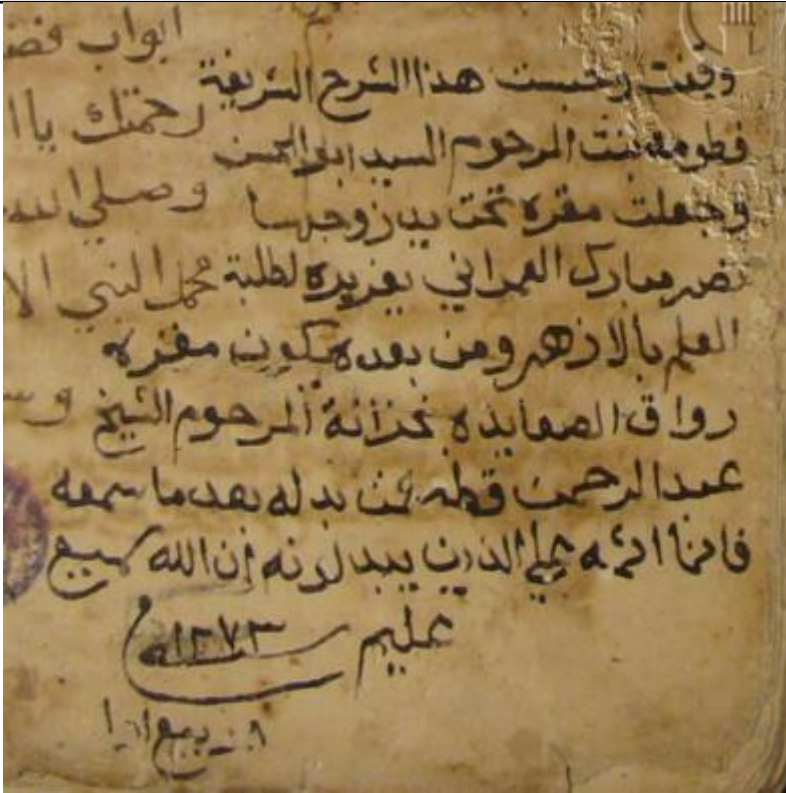 ابواب فض
وقفت وحبست هذا الشرح الشريفة
رحمتك يا ا
فطومه بنت المرحوم السيد ابو الحسن
وصلي الله
وجعلت مقره تحت يد زوجها
نصر مبارك العمراني لطلبة
محمد النبي الا
العلم بالازهر ومن بعده يكون مقره
رواق الصعايده بخزانة المرحوم الشيخ
وس
عبد الرحمن قطه فمن بدله بعد ما سمعه
فانما اثمه علي الذين يبدلونه ان الله سميع
عليم سنة ١٢٧٣